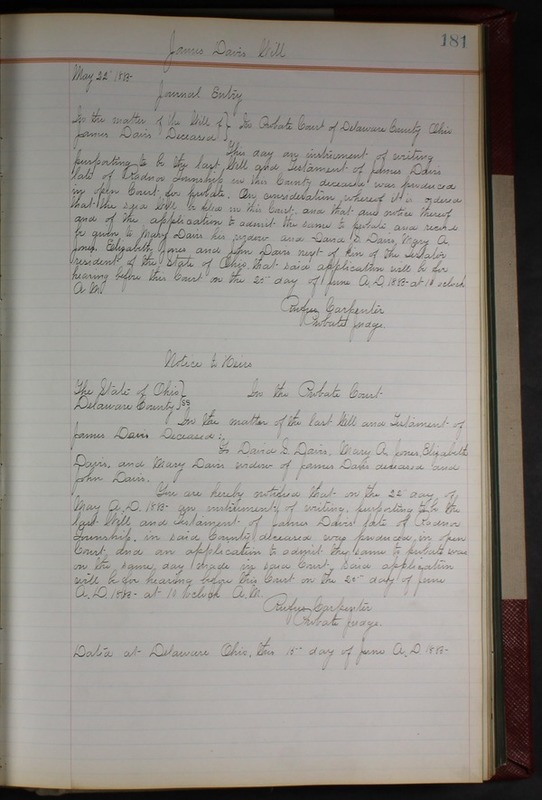 181
James Davis Will
May 22 1883-
Journal Entry
In the matter of the Will of } In Probate Court of Delaware County Ohio
James Davis Deceased }
This day an instrument of writing
purporting to be the last Will and Testament of James Davis
late of Radnor Township in this County deceased was produced
in open Court for probate. On consideration whereof it is ordered
that the said Will be filed in this Court and that due notice thereof
and of the application to admit the same to probate and record
be given to Mary Davis his widow and David S. Davis, Mary A.
Jones, Elizabeth Jones and John Davis next of kin of the testator
resident of the State of Ohio, that said application will be for
hearing before this Court on the 25 day of June A.D. 1883- at 10 oclock
A.M.
Rufus Carpenter
Probate Judge.
Notice to Heirs
The State of Ohio } In the Probate Court
Delaware County } SS
In the matter of the last Will and Testament of
James Davis Deceased:,
To David S. Davis, Mary A. Jones, Elizabeth
Davis, and Mary Davis widow of James Davis deceased and
John Davis.
You are hereby notified that on the 22 day of
May A.D. 1883- an instrument of writing, purporting to be the
last Will and Testament of James Davis late of Radnor
Township, in said County deceased was produced in open
Court, and an application to admit the same to probate was
on the same day made in said Court, said application
will be for hearing before this Court on the 25- day of June
A.D. 1883- at 10 oclock A.M.
Rufus Carpenter
Probate Judge.
Dated at Delaware Ohio, this 15- day of June A.D 1883-